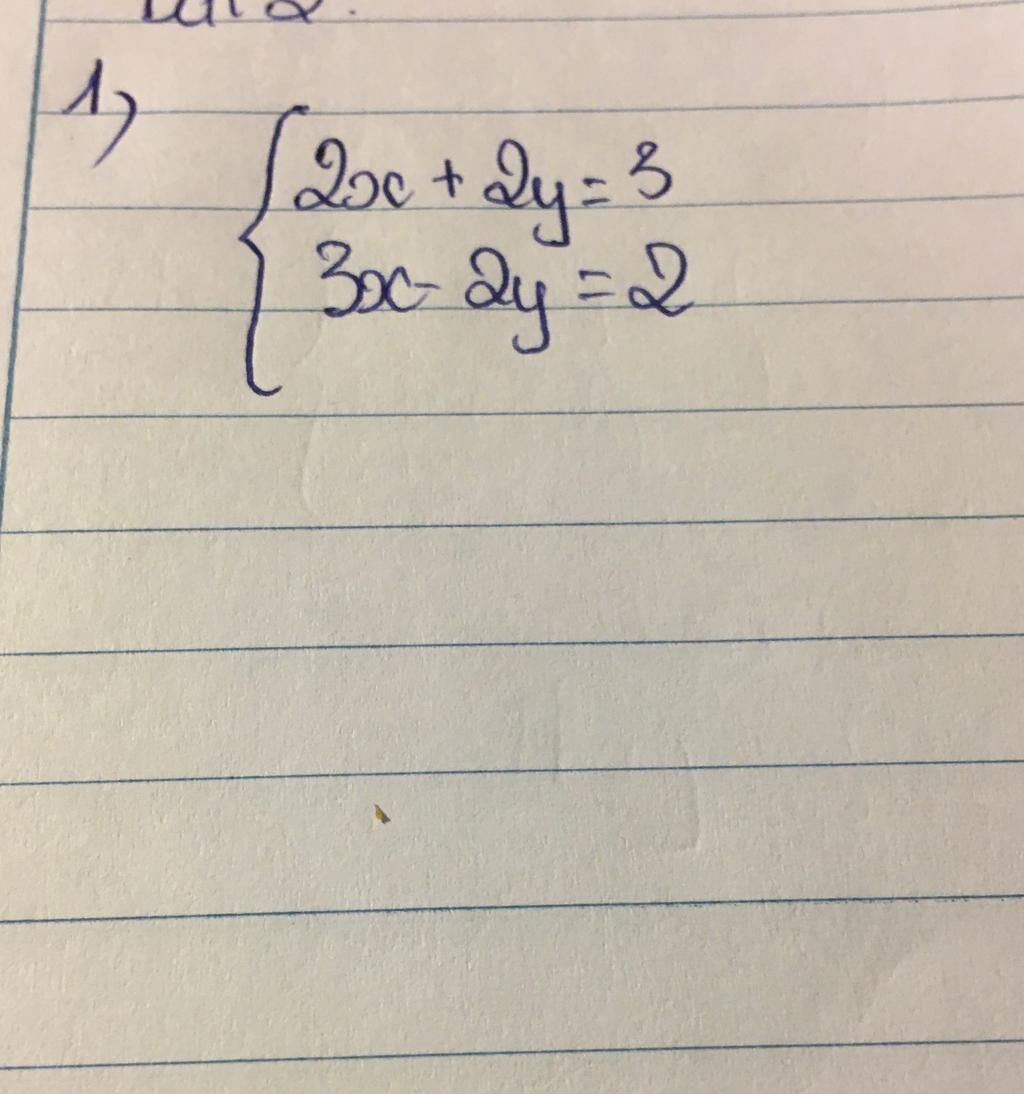 1)
2x + 2y = 3
3x - 2y = 2